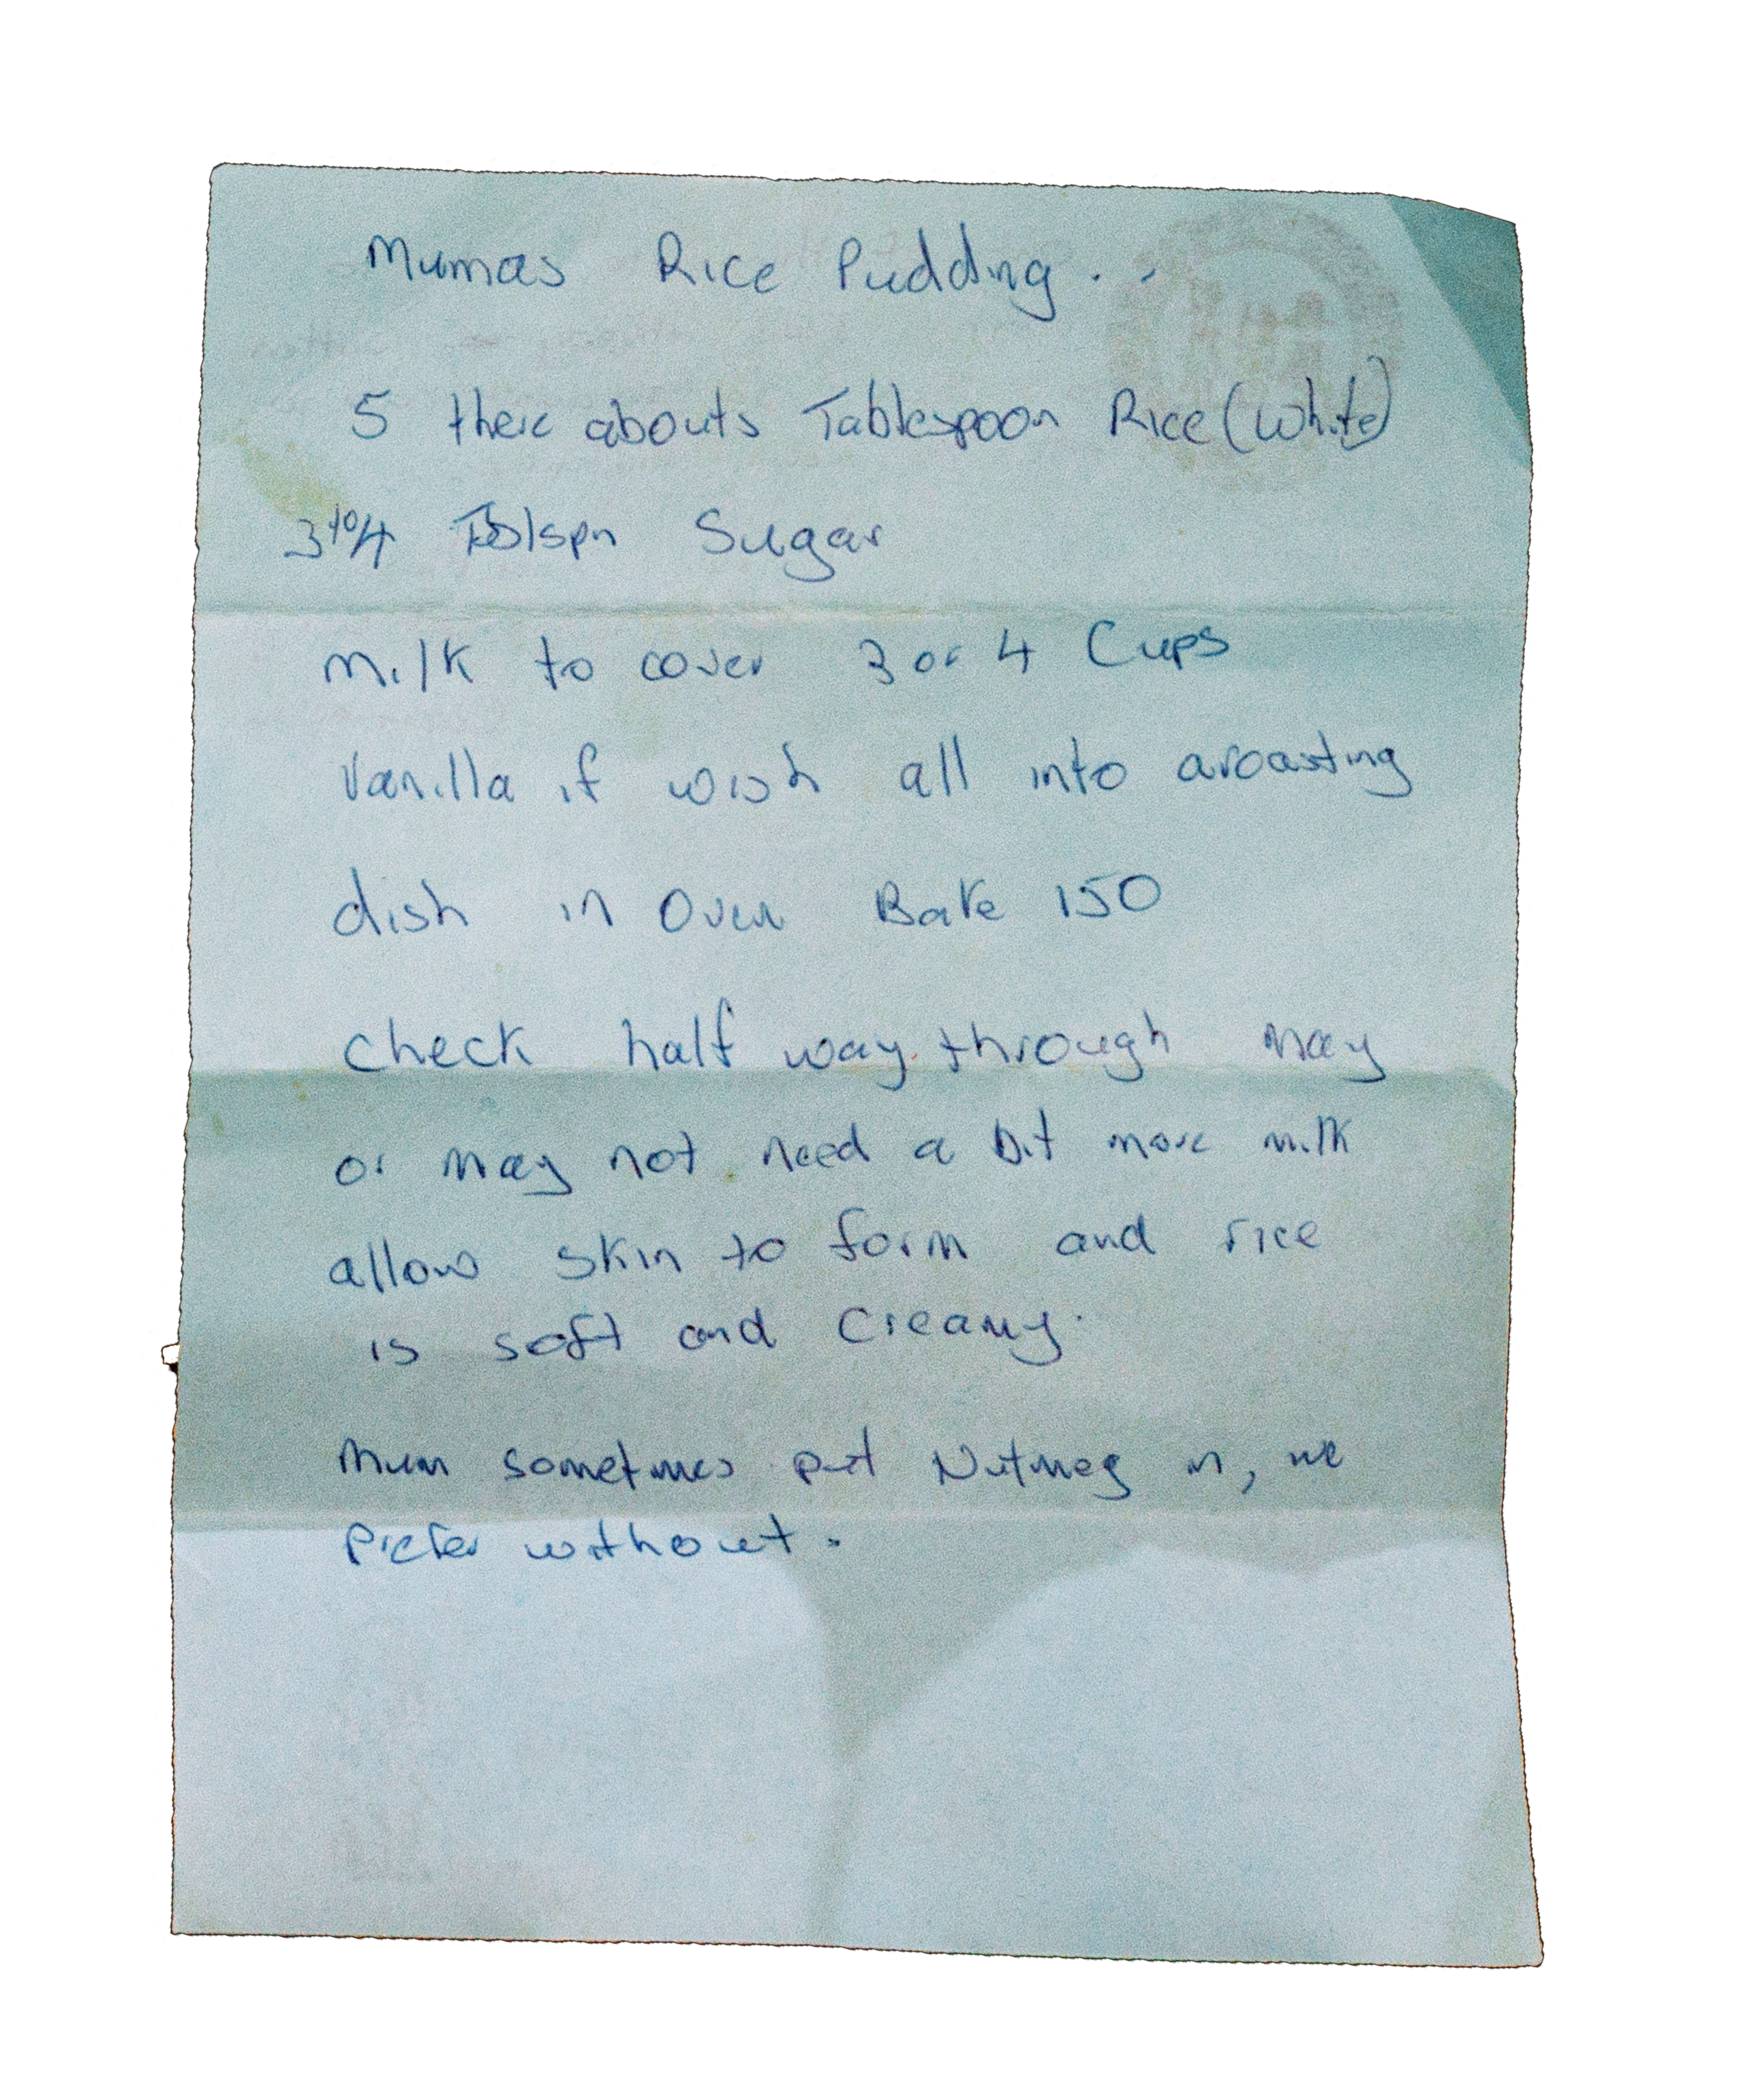 Mumas Rice Pudding . .
5 there abouts Tablespoon Rice (White)
3 to 4 Tblspn Sugar
Milk to cover 3 or 4 Cups
Vanilla if wish all into a roasting
dish in Oven Bake 150
Check half way through may
or may not need a bit more milk
allow skin to form and rice
is soft and creamy.
Mum sometimes put Nutmeg in, we
prefer without.